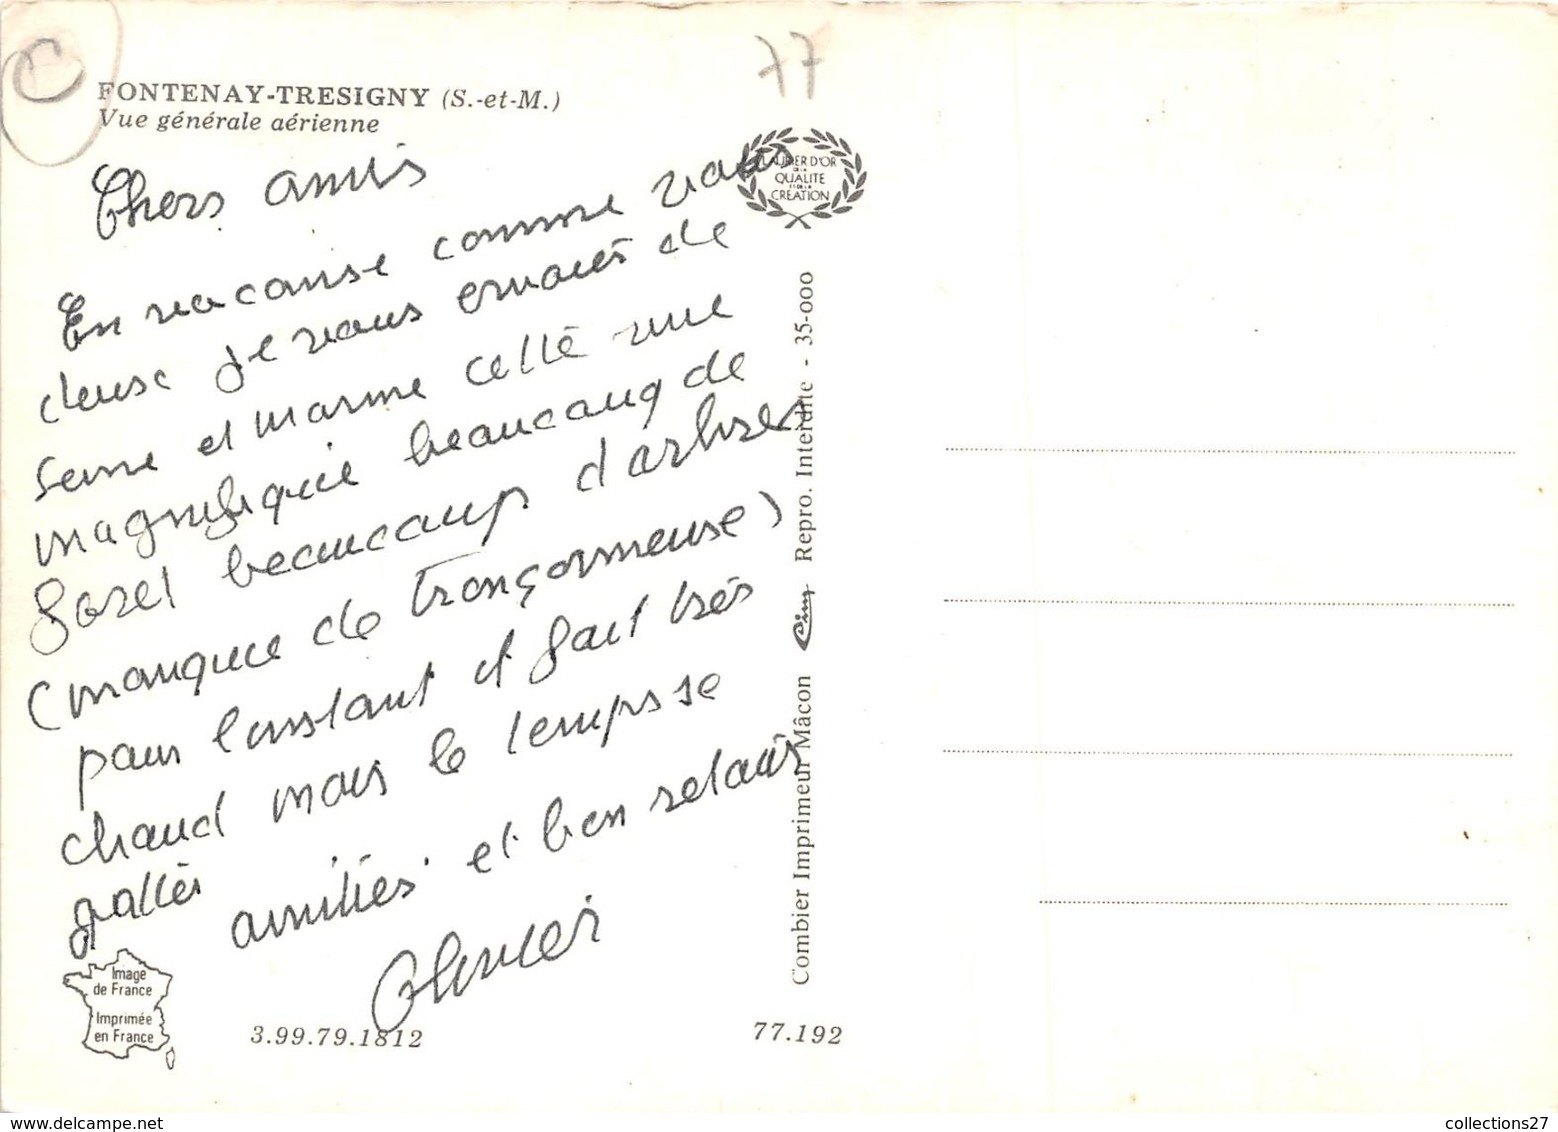 77
C
FONTENAY-TRESIGNY (S.-et-M.)
Vue générale aérienne
LAURIER D'OR
DE LA
QUALITE
ET DE LA
CREATION
Chers amis
En vacanse comme vous
deuse je vous envoies de
seine et marne cette vue
magnifique beaucoup de
foret beaucoup d'arbres
(manque de tronçonneuse)
pour l'instant il fait très
chaud mais le temps se
gattes
amitiés et bon retour
Olivier
Image
de France
Imprimée
en France
3.99.79.1812
77.192
Combier Imprimeur Mâcon Cim Repro. Interdite - 35-000
collections27